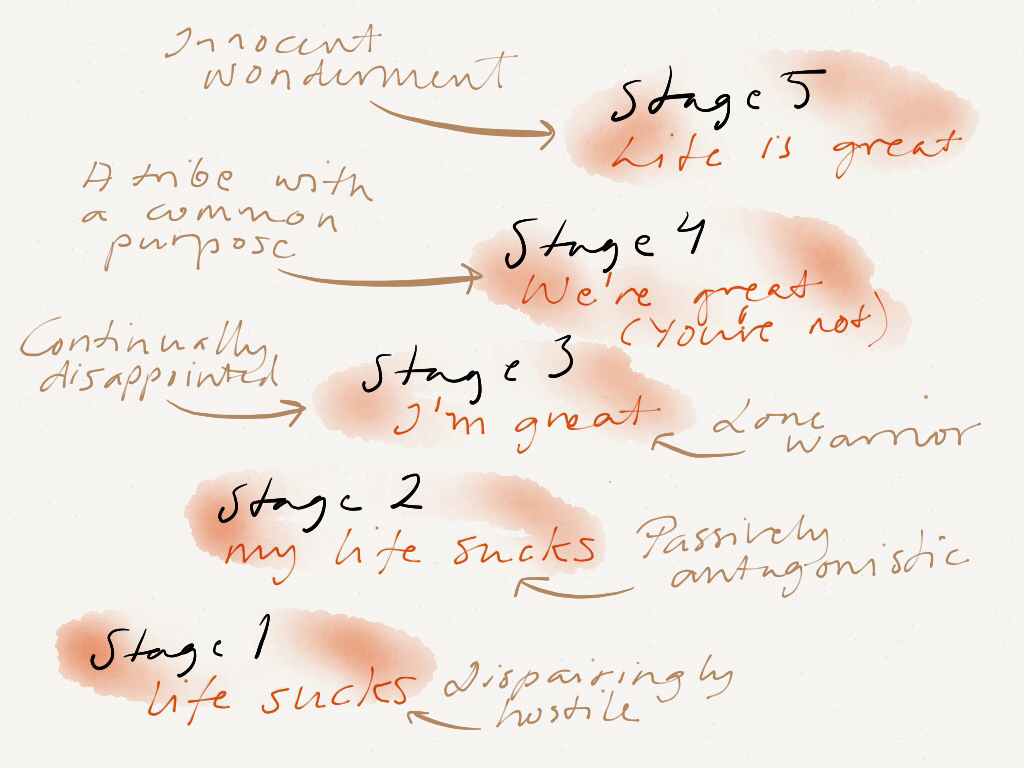 Innocent
wonderment
Stage 5
Life is great
A tribe with
a common
purpose
Stage 4
We're great
(You're not)
Continually
disappointed
Stage 3
I'm great
Lone
warrior
Stage 2
my life sucks
Passively
antagonistic
Stage 1
life sucks
Dispairingly
hostile